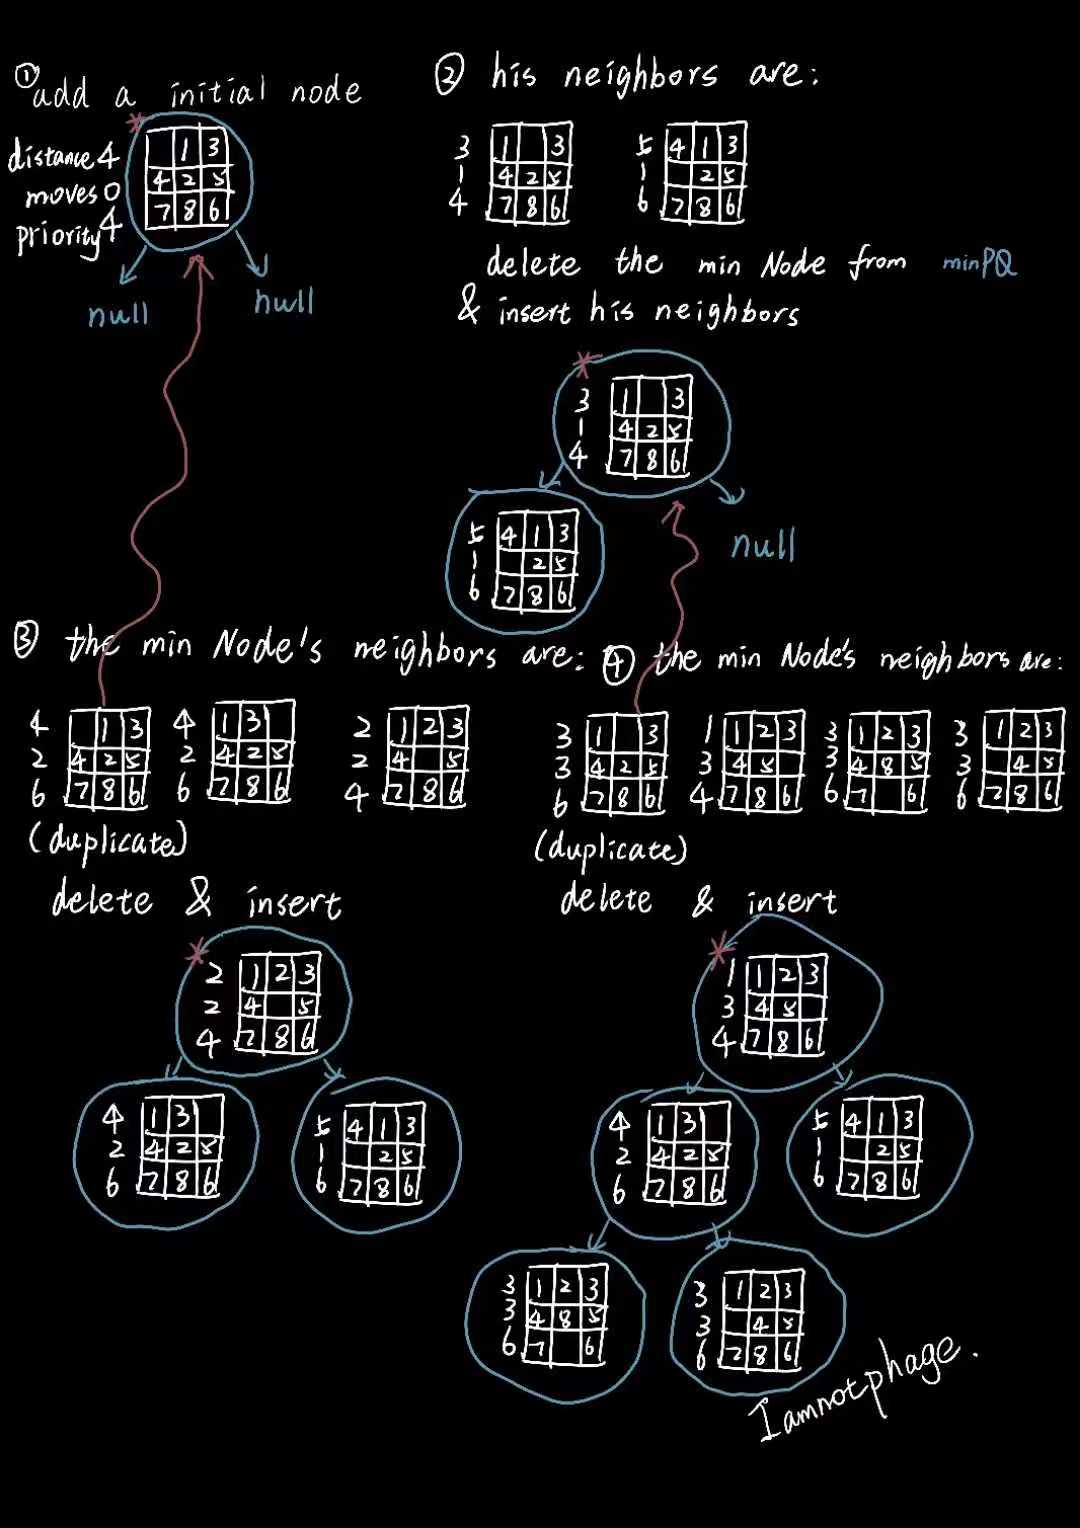 ① add a initial node
distance 4
moves 0
priority 4
1 3
4 2 5
7 8 6
null
null
② his neighbors are:
3
1
4
1 3
4 2 5
7 8 6
5
1
6
4 1 3
2 5
7 8 6
delete the min Node from minPQ
& insert his neighbors
3
1
4
1 3
4 2 5
7 8 6
5
1
6
4 1 3
2 5
7 8 6
null
③ the min Node's neighbors are:
4
2
6
1 3
4 2 5
7 8 6
4
2
6
1 3
4 2 5
7 8 6
2
2
4
1 2 3
4 5
7 8 6
(duplicate)
delete & insert
2
2
4
1 2 3
4 5
7 8 6
4
2
6
1 3
4 2 5
7 8 6
5
1
6
4 1 3
2 5
7 8 6
④ the min Node's neighbors are:
3
3
6
1 3
4 2 5
7 8 6
1
3
4
1 2 3
4 5
7 8 6
3
3
6
1 2 3
4 8 5
7 6
3
3
6
1 2 3
4 5
7 8 6
(duplicate)
delete & insert
1
3
4
1 2 3
4 5
7 8 6
4
2
6
1 3
4 2 5
7 8 6
5
1
6
4 1 3
2 5
7 8 6
3
3
6
1 2 3
4 8 5
7 6
3
3
6
1 2 3
4 5
7 8 6
Iamnotphage.